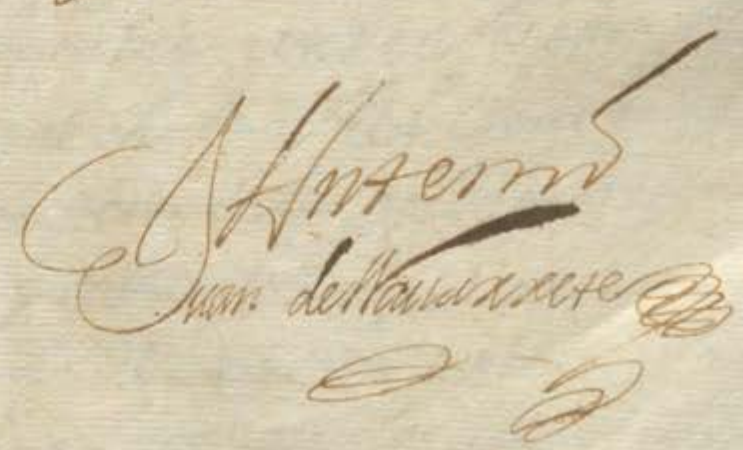 Antemi
Juan de Nauarrete